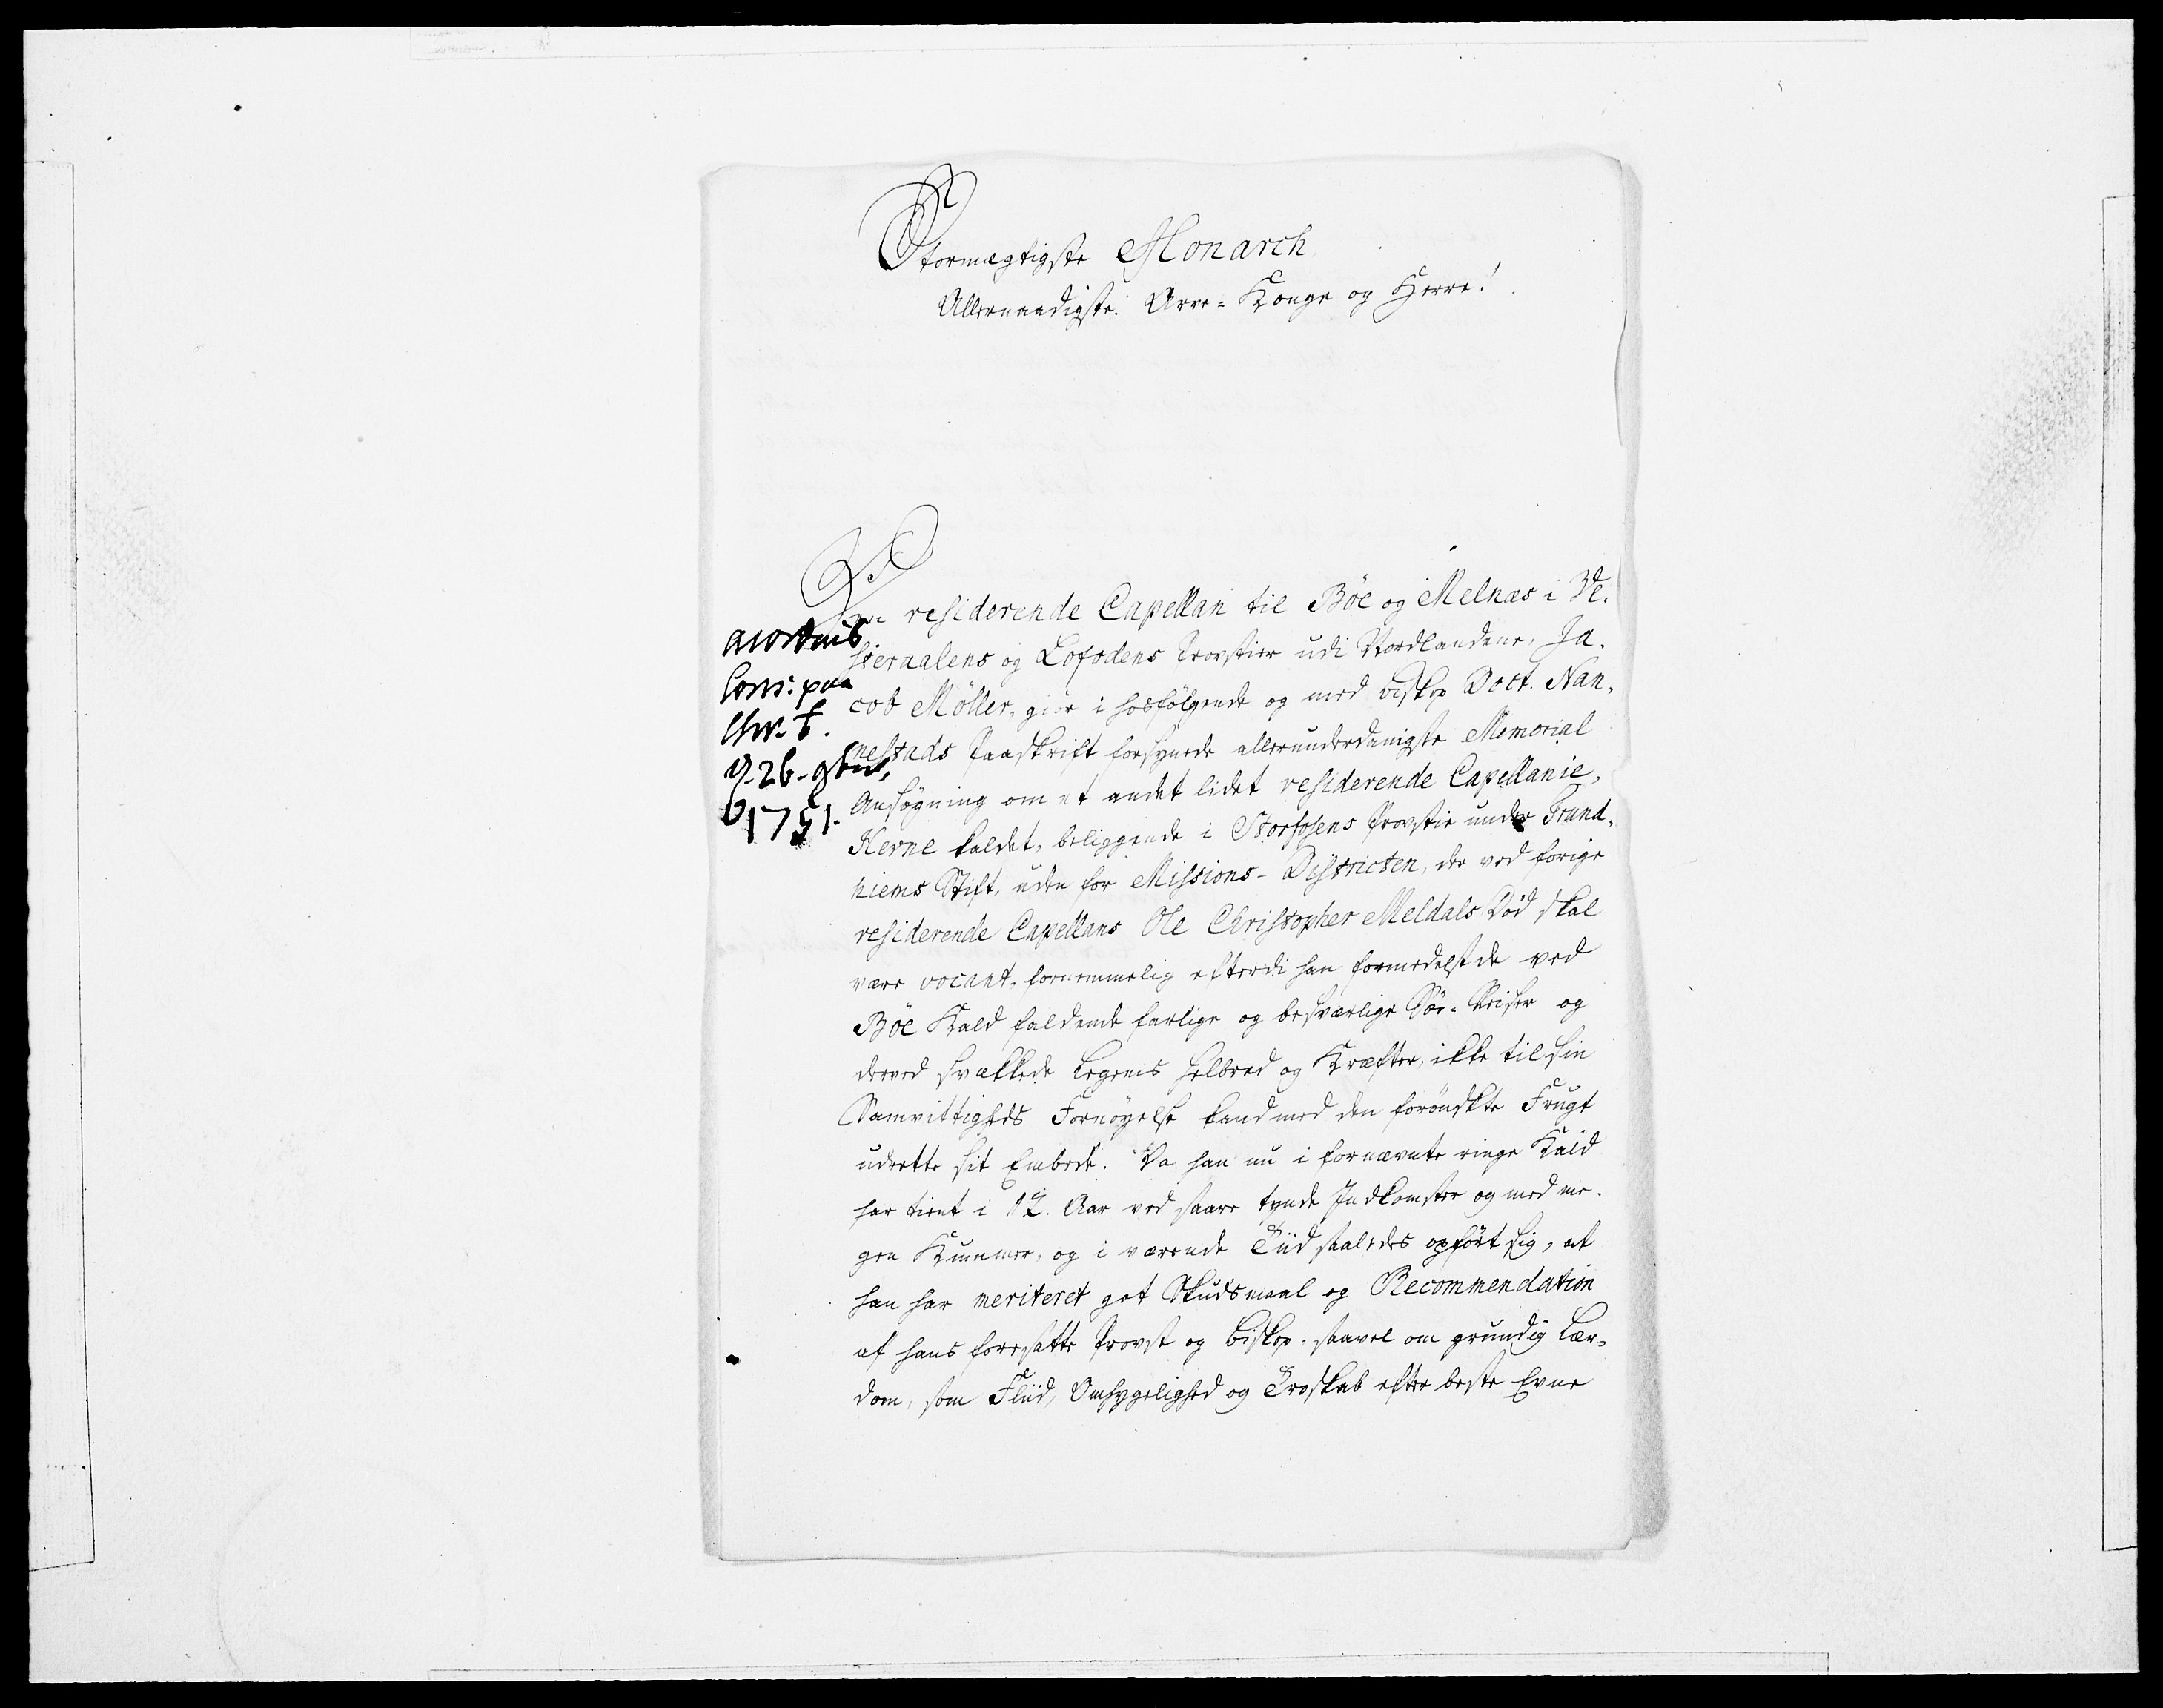 Stormægtigste Monarch
Allernaadigste Arve-Konge og Herre!
Den residerende Capellan til Böe og Melnæs i Ve-
steraalens og Lofodens Provstier udi Nordlandene, Ja-
cob Möller, giör i hosfölgende og med Biskop Doct. Nan-
nestads Paaskrift forsynede allerunderdanigste Memorial
Ansögning om et andet lidet residerende Capellanie,
Herne kaldet, beliggende i Storfosens Provstie under Trund-
hiems Stift, uden for Missions-Districten, der ved forige
residerende Capellans Ole Christopher Meldals Död skal
være vocant, fornemmelig efterdi han formedelst de ved
Böe Kald faldende farlige og besværlige Söe-Reiser og
derved svækkede Legems Helbred og Kræfter, ikke til sin
Samvittigheds Fornöyelse kand med den forönskte Frugt
udrette sit Embede. Da han nu i fornævnte ringe Kald
har tient i 12. Aar ved saare tynde Indkomster og med me-
gen Kummer, og i værende Tiid saaledes opfört sig, at
han har meriteret got Skudsmaal og Recommendation
af hans foresatte Provst og Biskop, saavel om grundig Lær-
dom, som Fliid, Omhyggelighed og Troskab efter beste Evne
Cons: paa
Chr.b.
d. 26.
1751.